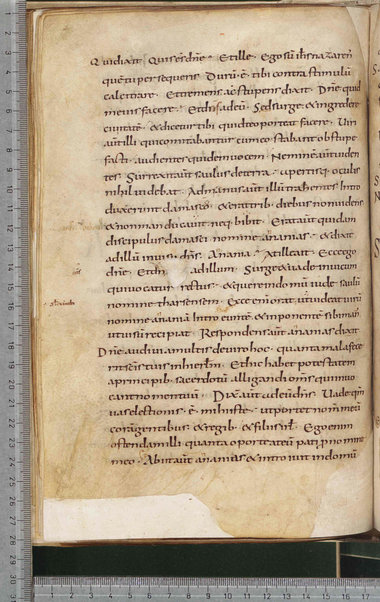 Qui dixit · Quis es dñe · Et ille · Ego sũ ihs nazaren
quẽ tu persequeris · Durũ · ẽ · tibi contra stimulũ
calcitrare · Et tremens ac stupens dixit · Dñe quid
me uis facere · Et dñs ad eũ · Sed surge & ingredere
ciuitatẽ · & dicetur tibi quid te oporteat facere · Uiri
aut̃ illi qui comitabantur cum eo stabant obstupe
facti · audientes quidem uocem · Neminẽ aut̃ uiden
tes · Surrexit aut̃ saulus de terra · apertisq; oculis
nihil uidebat · Ad manus aut̃ illũ trahentes intro
duxerunt damasco · & erat trib; diebus non uidens
& non manducauit neq; bibit · Erat aut̃ quidam
discipulus damasci nomine ananias · & dixit
ad illũ in uisu dñs · Anania · At ille ait · Ecce ego
dñe · Et dñs ad illum · Surge & uade in uicum
qui uocatur rectus · & quere in domũ iude saulũ
nomine tharsensem · Ecce enĩ orat & uidit uirũ
nomine ananiã introeuntẽ & inponentẽ sibi man
ut uisũ recipiat · Respondens aut̃ ananias dixit
Dñe audiui a multis de uiro hoc · quanta mala fece
rit scĩs tuis in hierlm̃ · Et hic habet potestatem
a principib; sacerdotũ alligandi om̃s qui inuo
cant nomen tuũ · Dix̃ aut̃ ad eũ dñs · Uade qm̃
uas electionis · ẽ · mihi iste · ut portet nom̃ meũ
corã gentibus · & regib; & filiis isrl̃ · Ego enim
ostendam illi quanta oporteat eũ pati p nomine
meo · Abiit aut̃ ananias & introiuit in domũ